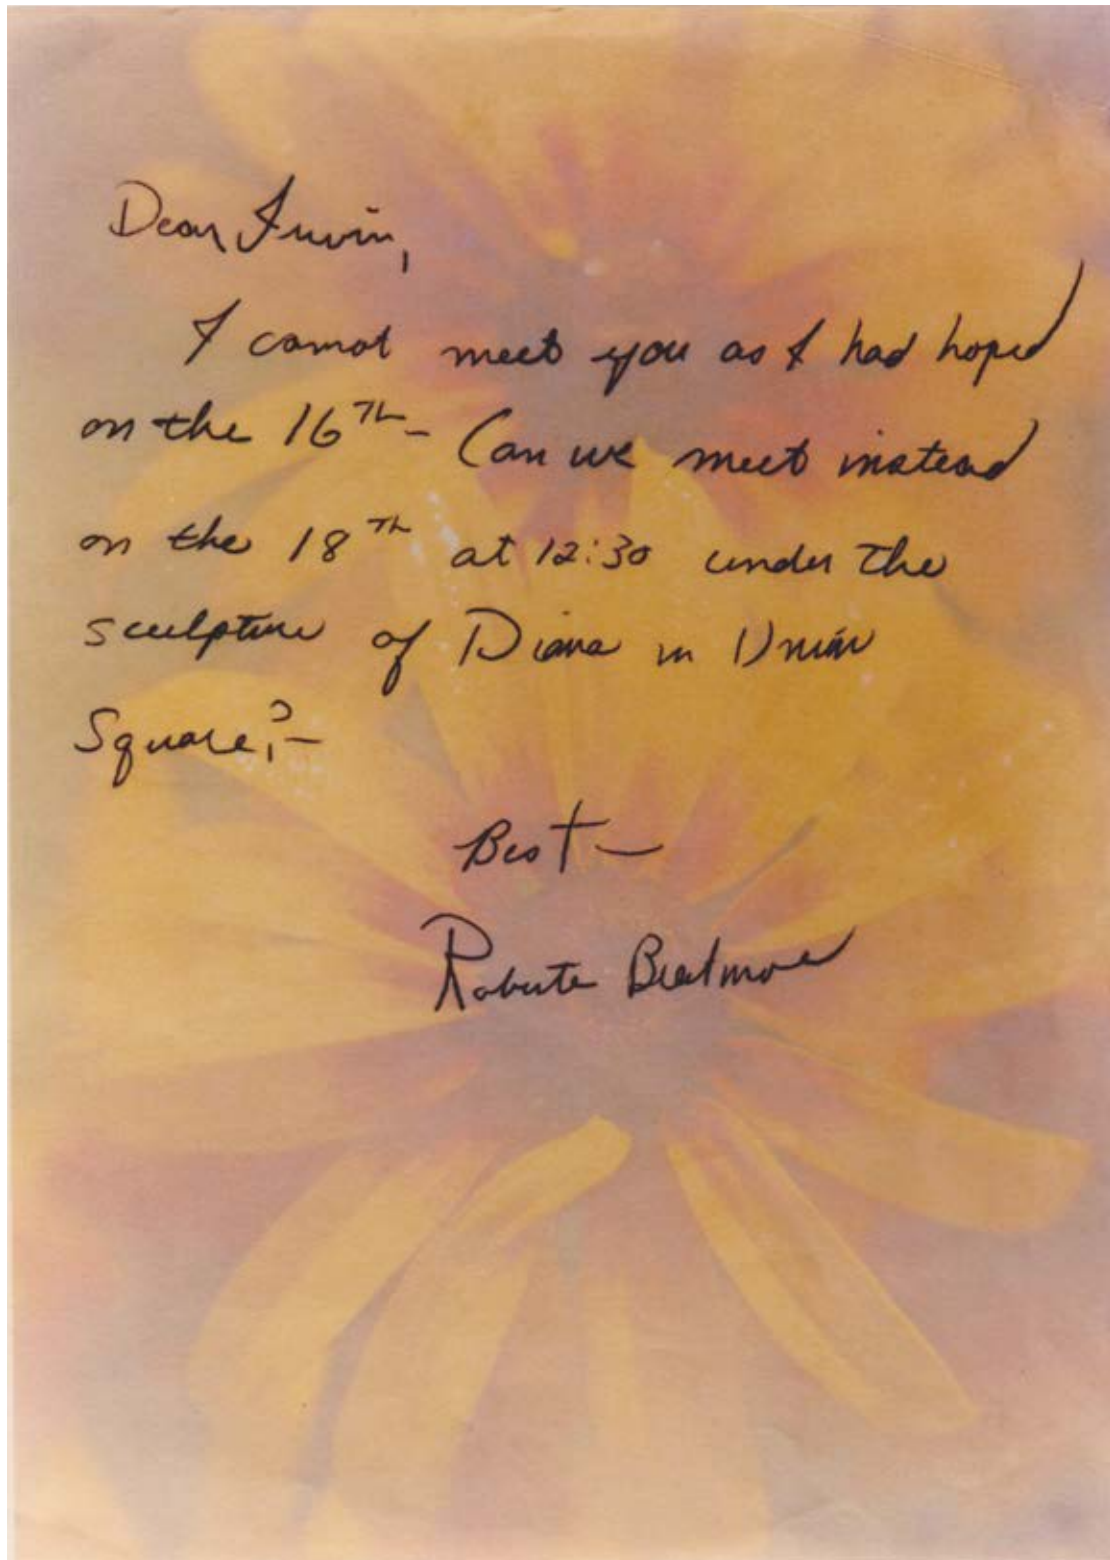 Dear Irwin,
I cannot meet you as I had hoped
on the 16Th - Can we meet instead
on the 18Th at 12:30 under the
sculpture of Diana in Union
Square? -
Best -
Roberta Breitmore